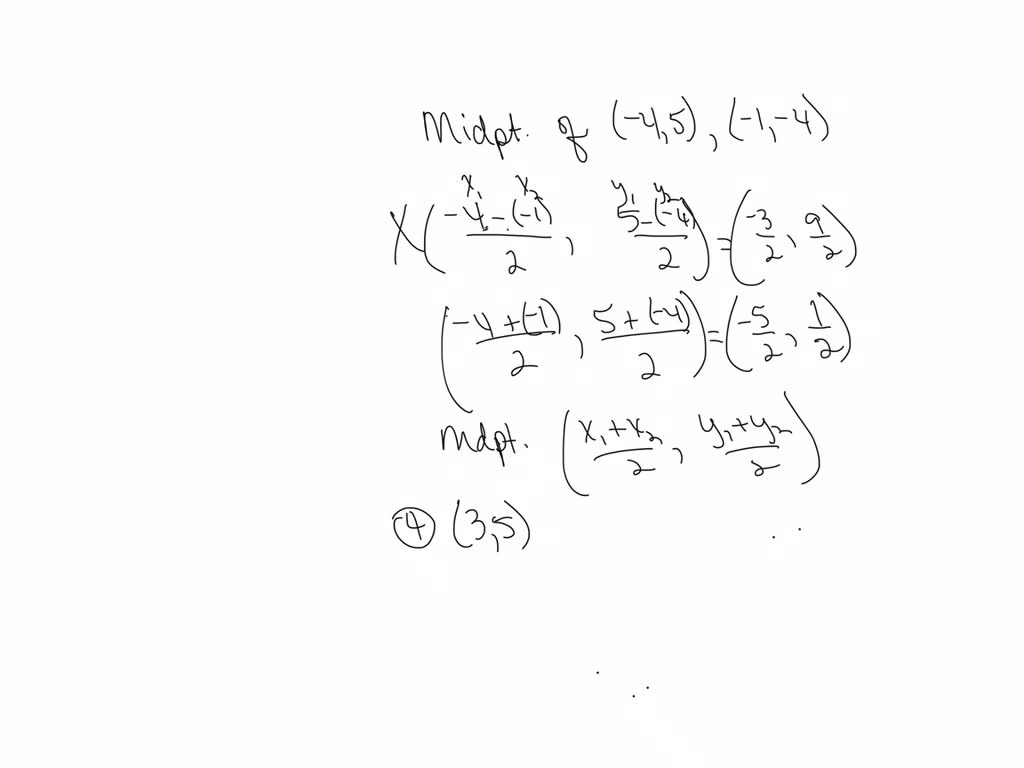 Midpt. of (-4,5), (-1,-4)
x₁ x₂ y₁ y₂
X ( -4-(-1)/2 , 5-(-4)/2 ) = ( -3/2 , 9/2 )
( -4+(-1)/2 , 5+(-4)/2 ) = ( -5/2 , 1/2 )
mdpt. ( x₁+x₂/2 , y₁+y₂/2 )
④ (3,5)